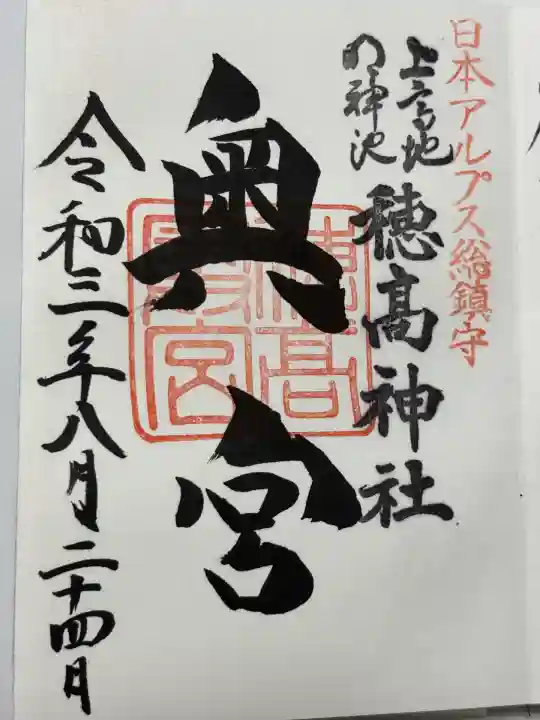 日本アルプス総鎮守
上高地
明神池
穂髙神社
奥宮
穂高
奥宮
令和三年八月二十四日